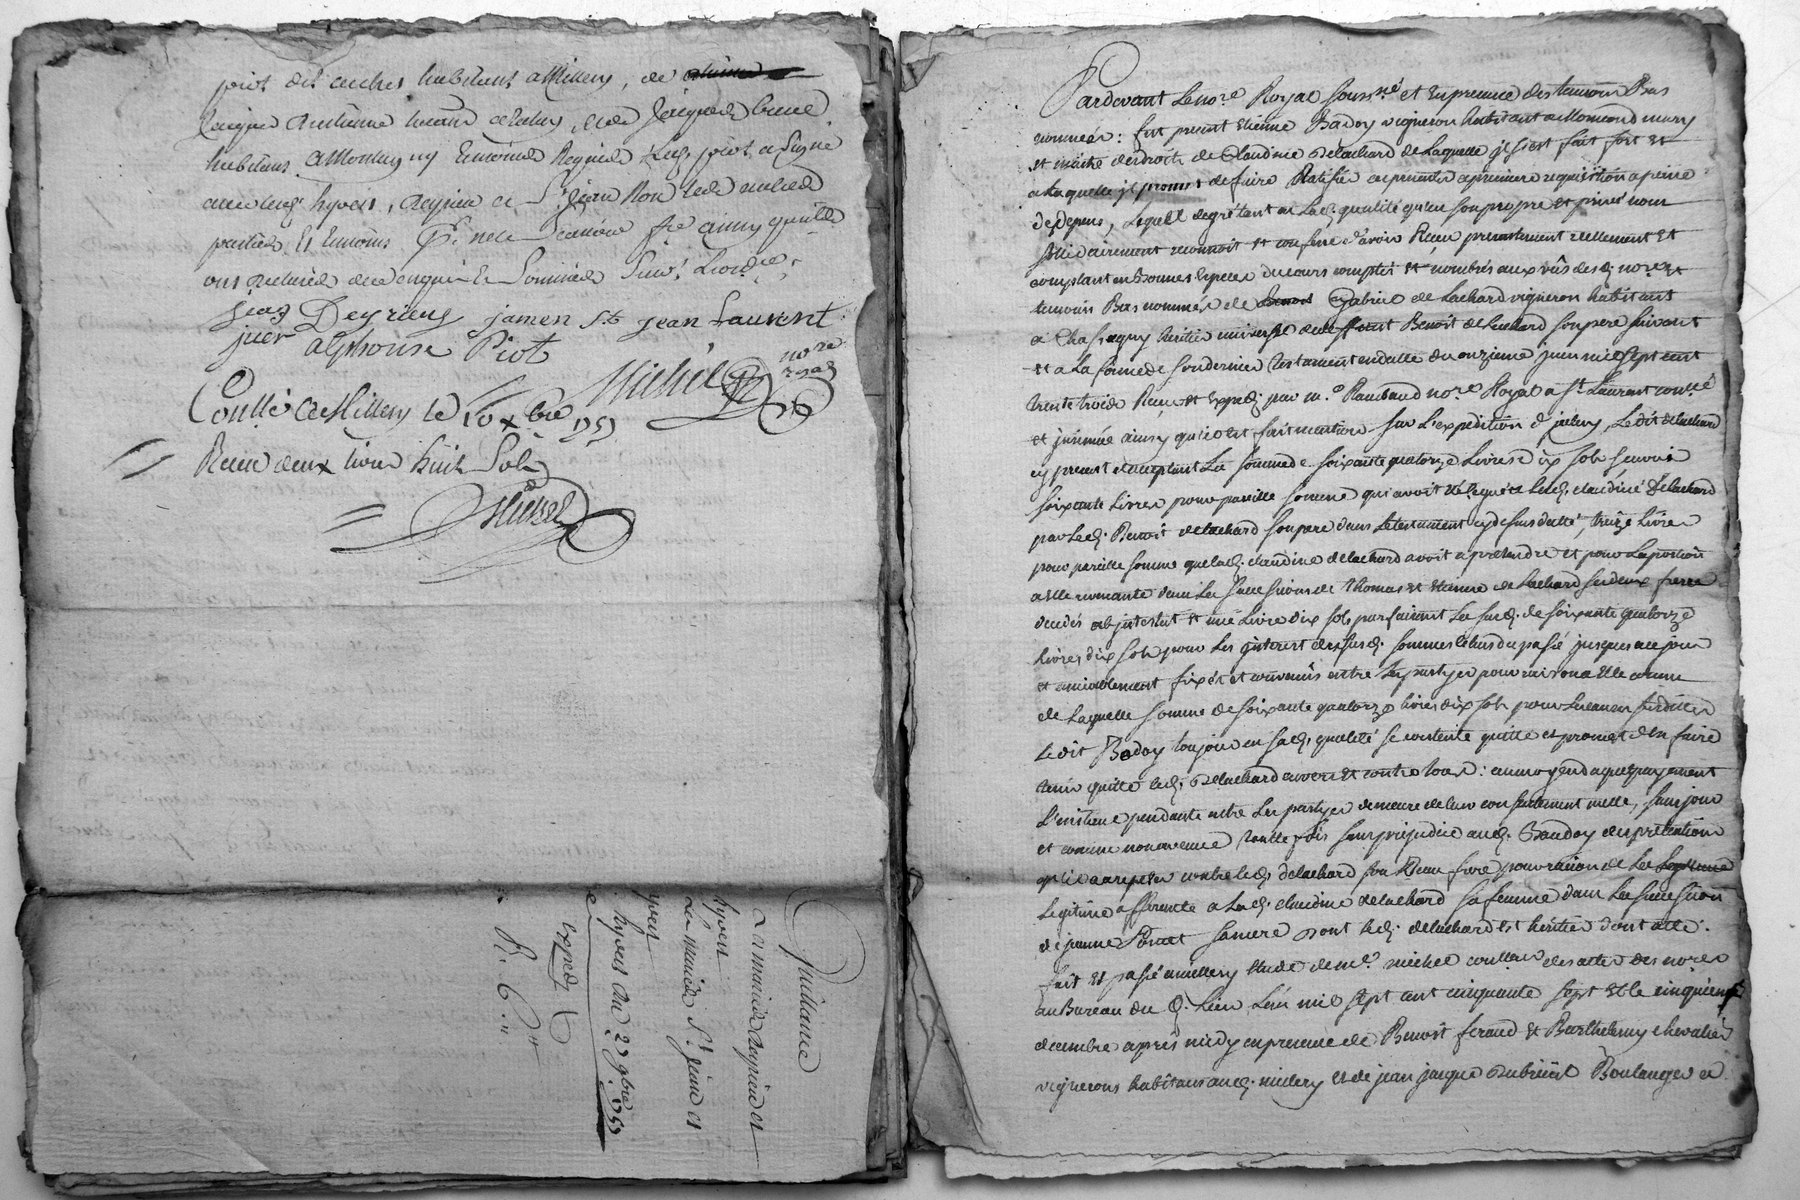 piot dit habitant a Millery, de
habitans a Montagny Regnier piot a signé
avec led. hyvert, deyrieu et St jean non led.
parties et temoins fre ainsy qu'ils
ont declaré de ce enquis et sommés
jean Deyrieu jamen St jean Laurent
alphonse Piot
Michel nore royal
Conllé a Millery le 10 xbre 1757
Receu deux livres huit sols
Michel
Quittance
La mariée deyrieu et
hyvert
La mariée St jean et
hyvert
du 29 9bre 1757
exped
R. 6
Pardevant Le nore Royal soussné et en presence des temoins Bas
nommés : fut present Etienne Badoy vigneron habitant a mary
et maitre des droits de Claudine Delachard de Laquelle il s'est fait fort et
a Laquelle il promet de faire Ratifié ces presentes a premiere requisition a peine
de depens, Lequel de gré tant en Lad. qualité qu'en son propre et privé nom
solidairement reconnoit et confesse d'avoir Receu presentement reellement et
comptant en bonnes especes du cours comptés et nombrés aux vûs desd. nore et
temoins Bas nommés de Gabriel de Lachard vigneron habitant
a Chassagny heritier universel de deffunt Benoit de Lachard son pere suivant
et a La forme de son dernier testament en datte du onzieme juin mil sept cent
trente trois Receu et Exped. par me Rambaud nore Royal a St Laurent
et ainsy qu'il est fait mention sur L'expedition d'iceluy, Le dit delachard
cy present et acceptant La somme de soixante quatorze Livres dix sols sçavoir
soixante Livres pour pareille somme qui avoit été leguée a Lad. claudine Delachard
par Led. Benoit delachard son pere dans Le testament cy dessus datté, treize Livres
pour pareille somme que lad. claudine delachard avoit a pretendre et pour La portion
a elle revenante dans Les successions de thomas et Etienne de Lachard ses deux freres
decedés ab intestat et une Livre dix sols parfaisant La susd. de soixante quatorze
Livres dix sols pour Les interets des susd. sommes tant du passé jusques a ce jour
et amiablement fixés et convenus entre Les partyes pour raison
de Laquelle somme de soixante quatorze livres dix sols pour Les causes susdittes
Le dit Badoy toujours en sad. qualité se contente quitte et promet d'en faire
tenir quitte led. Delachard envers et contre tous : au moyen duquel payement
L'instance pendante entre Les partyes demeure de leur consentement nulle, sans jour
et comme non avenue toutte fois sans prejudice aud. Baudoy des pretentions
qu'il a a repeter contre led. delachard son Beau frere pour raison de La
Legitime afferante a Lad. claudine delachard sa femme dans La succession
de jeanne Poncet sa mere dont led. delachard est heritier dont acte.
fait et passé a millery Etude de me michel conlleur des actes des nores
au Bureau du d. Lieu L'an mil sept cent cinquante sept et le cinquieme
decembre après midy en presence de Benoit feraud et Barthelemy chevalier
vignerons habitans aud. millery et de jean jacque Boulanger a